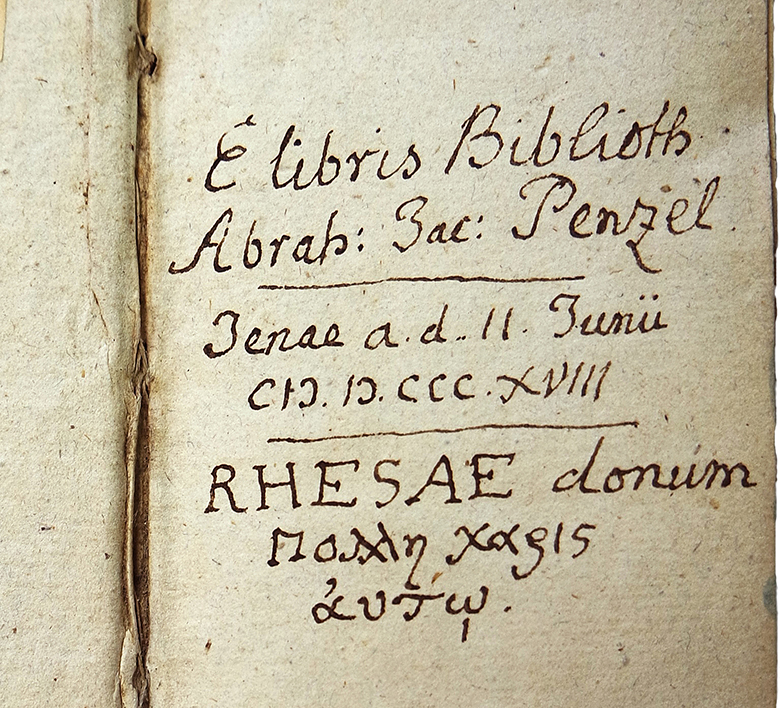 É libris Biblioth
Abrah: Jac: Penzel.
Jenae a. d. 11. Junii
CIƆ. IƆ. CCC. XVIII
RHESAE donum
Πολλὴ χαρις
ἀυτῷ.